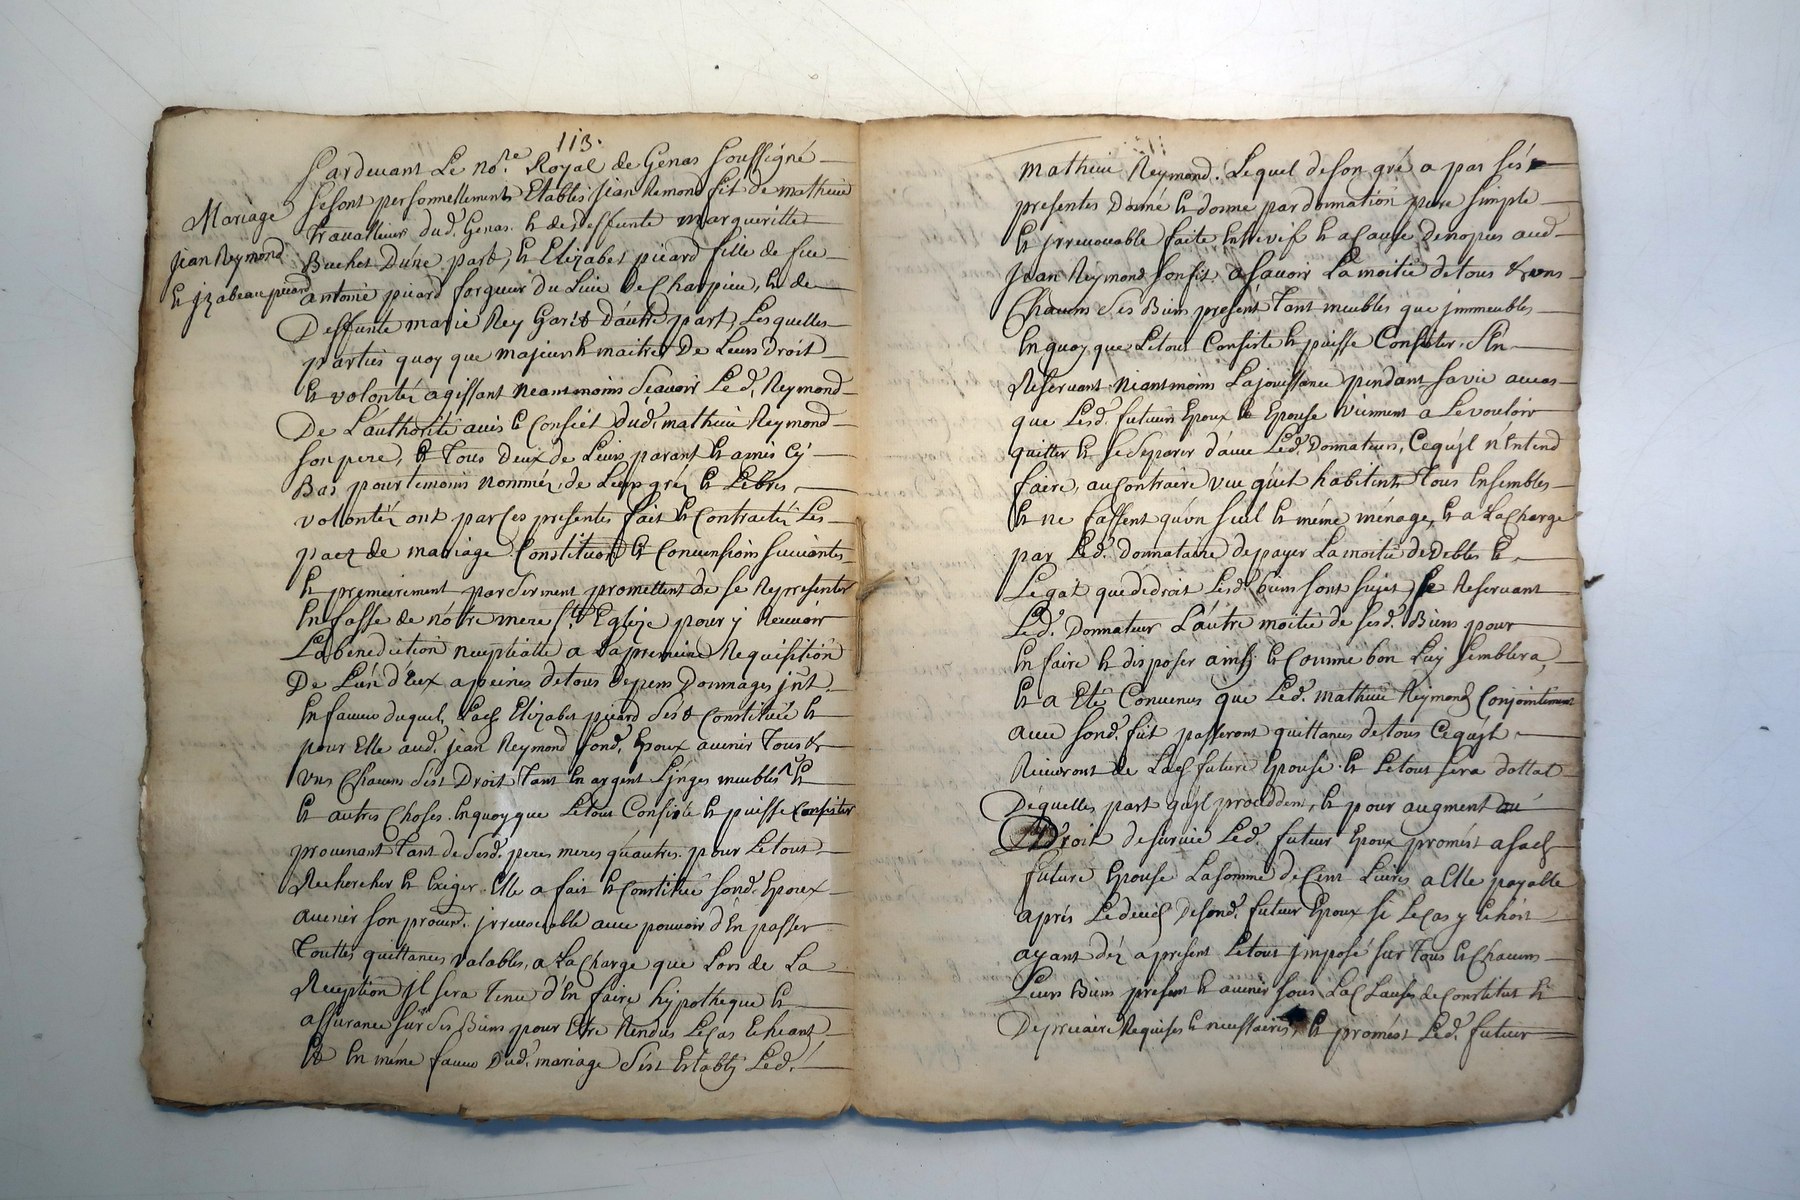 113.
Mariage
Jean Reymond
et jzabeau picard
Pardevant Le no.re Royal de Genas soussigné
se sont personnellement Etablis jean Remond fils de mathieu
travailleur dud. Genas et de deffunte margueritte
Buchet D'une part, et Elizabet picard fille de feu
antoine picard du Lieu de Charpieu, et de
Deffunte marie Rey D'autre part, Lesquelles
parties quoy que majeurs et maitres De Leurs droit
et volontéz agissant neantmoins sçavoir Led. Reymond
De L'authorité avis et Conseil dud. mathieu Reymond
son pere, et Tous deux de Leurs parant et amis Cy
Bas pour temoins nomméz, de Leurs gréz et Libres
volontéz ont par Ces presentes fait et Contractéz Les
pact de mariage Constitution et Conventions suivantes
et premierement par serment promettent de se Representer
en fasse de nótre mere s.te Eglize pour y Recevoir
La benediction nuptialle a La premiere Requisition
De L'un d'Eux a peines de tous depens Dommages jnt.
en faveur duquel, Lad. Elizabet picard s'est Constituée et
pour Elle aud. jean Reymond sond. Epoux avenir Tous et
uns Chacuns ses Droit Tant en argent Linges meubles et
et autres Choses en quoy que Letout Consiste et puisse Consister
provenant Tant de sesd. peres meres qu'autres pour Letout
Rechercher et exiger Elle a fait et Constitué sond. Epoux
avenir son procur. jrrevocable avec pouvoir d'en passer
Touttes quittances valables, a La Charge que Lors de La
Reception jl sera Tenu d'en faire hypotheque et
assurance sur ses Biens pour Etre Rendus Le Cas Echeant
Et en méme faveur Dud. mariage s'est Etably Led.
mathieu Reymond. Lequel de son gré a par ses
presentes Donné et donne par donnation pure simple
et jrrevocable faite entre vif et a Cause de nopces aud.
Jean Reymond son fils a savoir La moitié de tous et uns
Chacuns ses Biens present Tant meubles que jmmeubles
en quoy que Letout Consiste et puisse Consister. S'en
Reservant neantmoins La jouissance pendant sa vie au cas
que Lesd. futurs Epoux et Epouse viennent a Le vouloir
quitter et se separer d'avec Led. Donnateur, Ce qu'jl n'entend
faire, au Contraire veu qu'il habitent Tous Ensembles
et ne fassent qu'vn seul et méme ménage, et a La Charge
par Led. donnataire de payer La moitié de Debtes et
Legat que de droit Lesd. biens sont sujet se Reservant
Led. Donnateur L'autre moitié de sesd. Biens pour
en faire et disposer ainsy et Comme bon Luy semblera,
et a Eté Convenus que Led. mathieu Reymond Conjointement
avec sond. fils passeront quittances de tous Ce qu'jl
Recevront de Lad. future Epouse et Letout sera dottal
De quelles part qu'jl procedden, et pour augment au
Droit de survie Led. futur Epoux promést a sad.
future Epouse La somme de Cent Livres a elle payable
aprés Le deces De sond. futur Epoux si Le Cas y Echoit
ayant déz a present Letout jmposé sur Tous et Chacuns
Leurs Biens present et avenir sous La Clauses de Constitut et
De precaire Requises et necessaires, et promést Led. futur